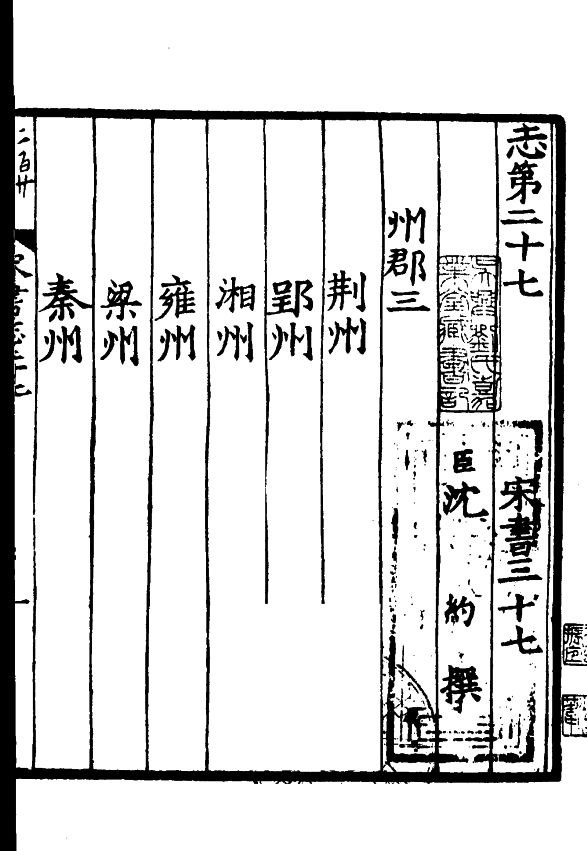 志第二十七
宋書三十七
臣沈約撰
州郡三
荆州
郢州
湘州
雍州
梁州
秦州
宋書志二十七
一
二百廿